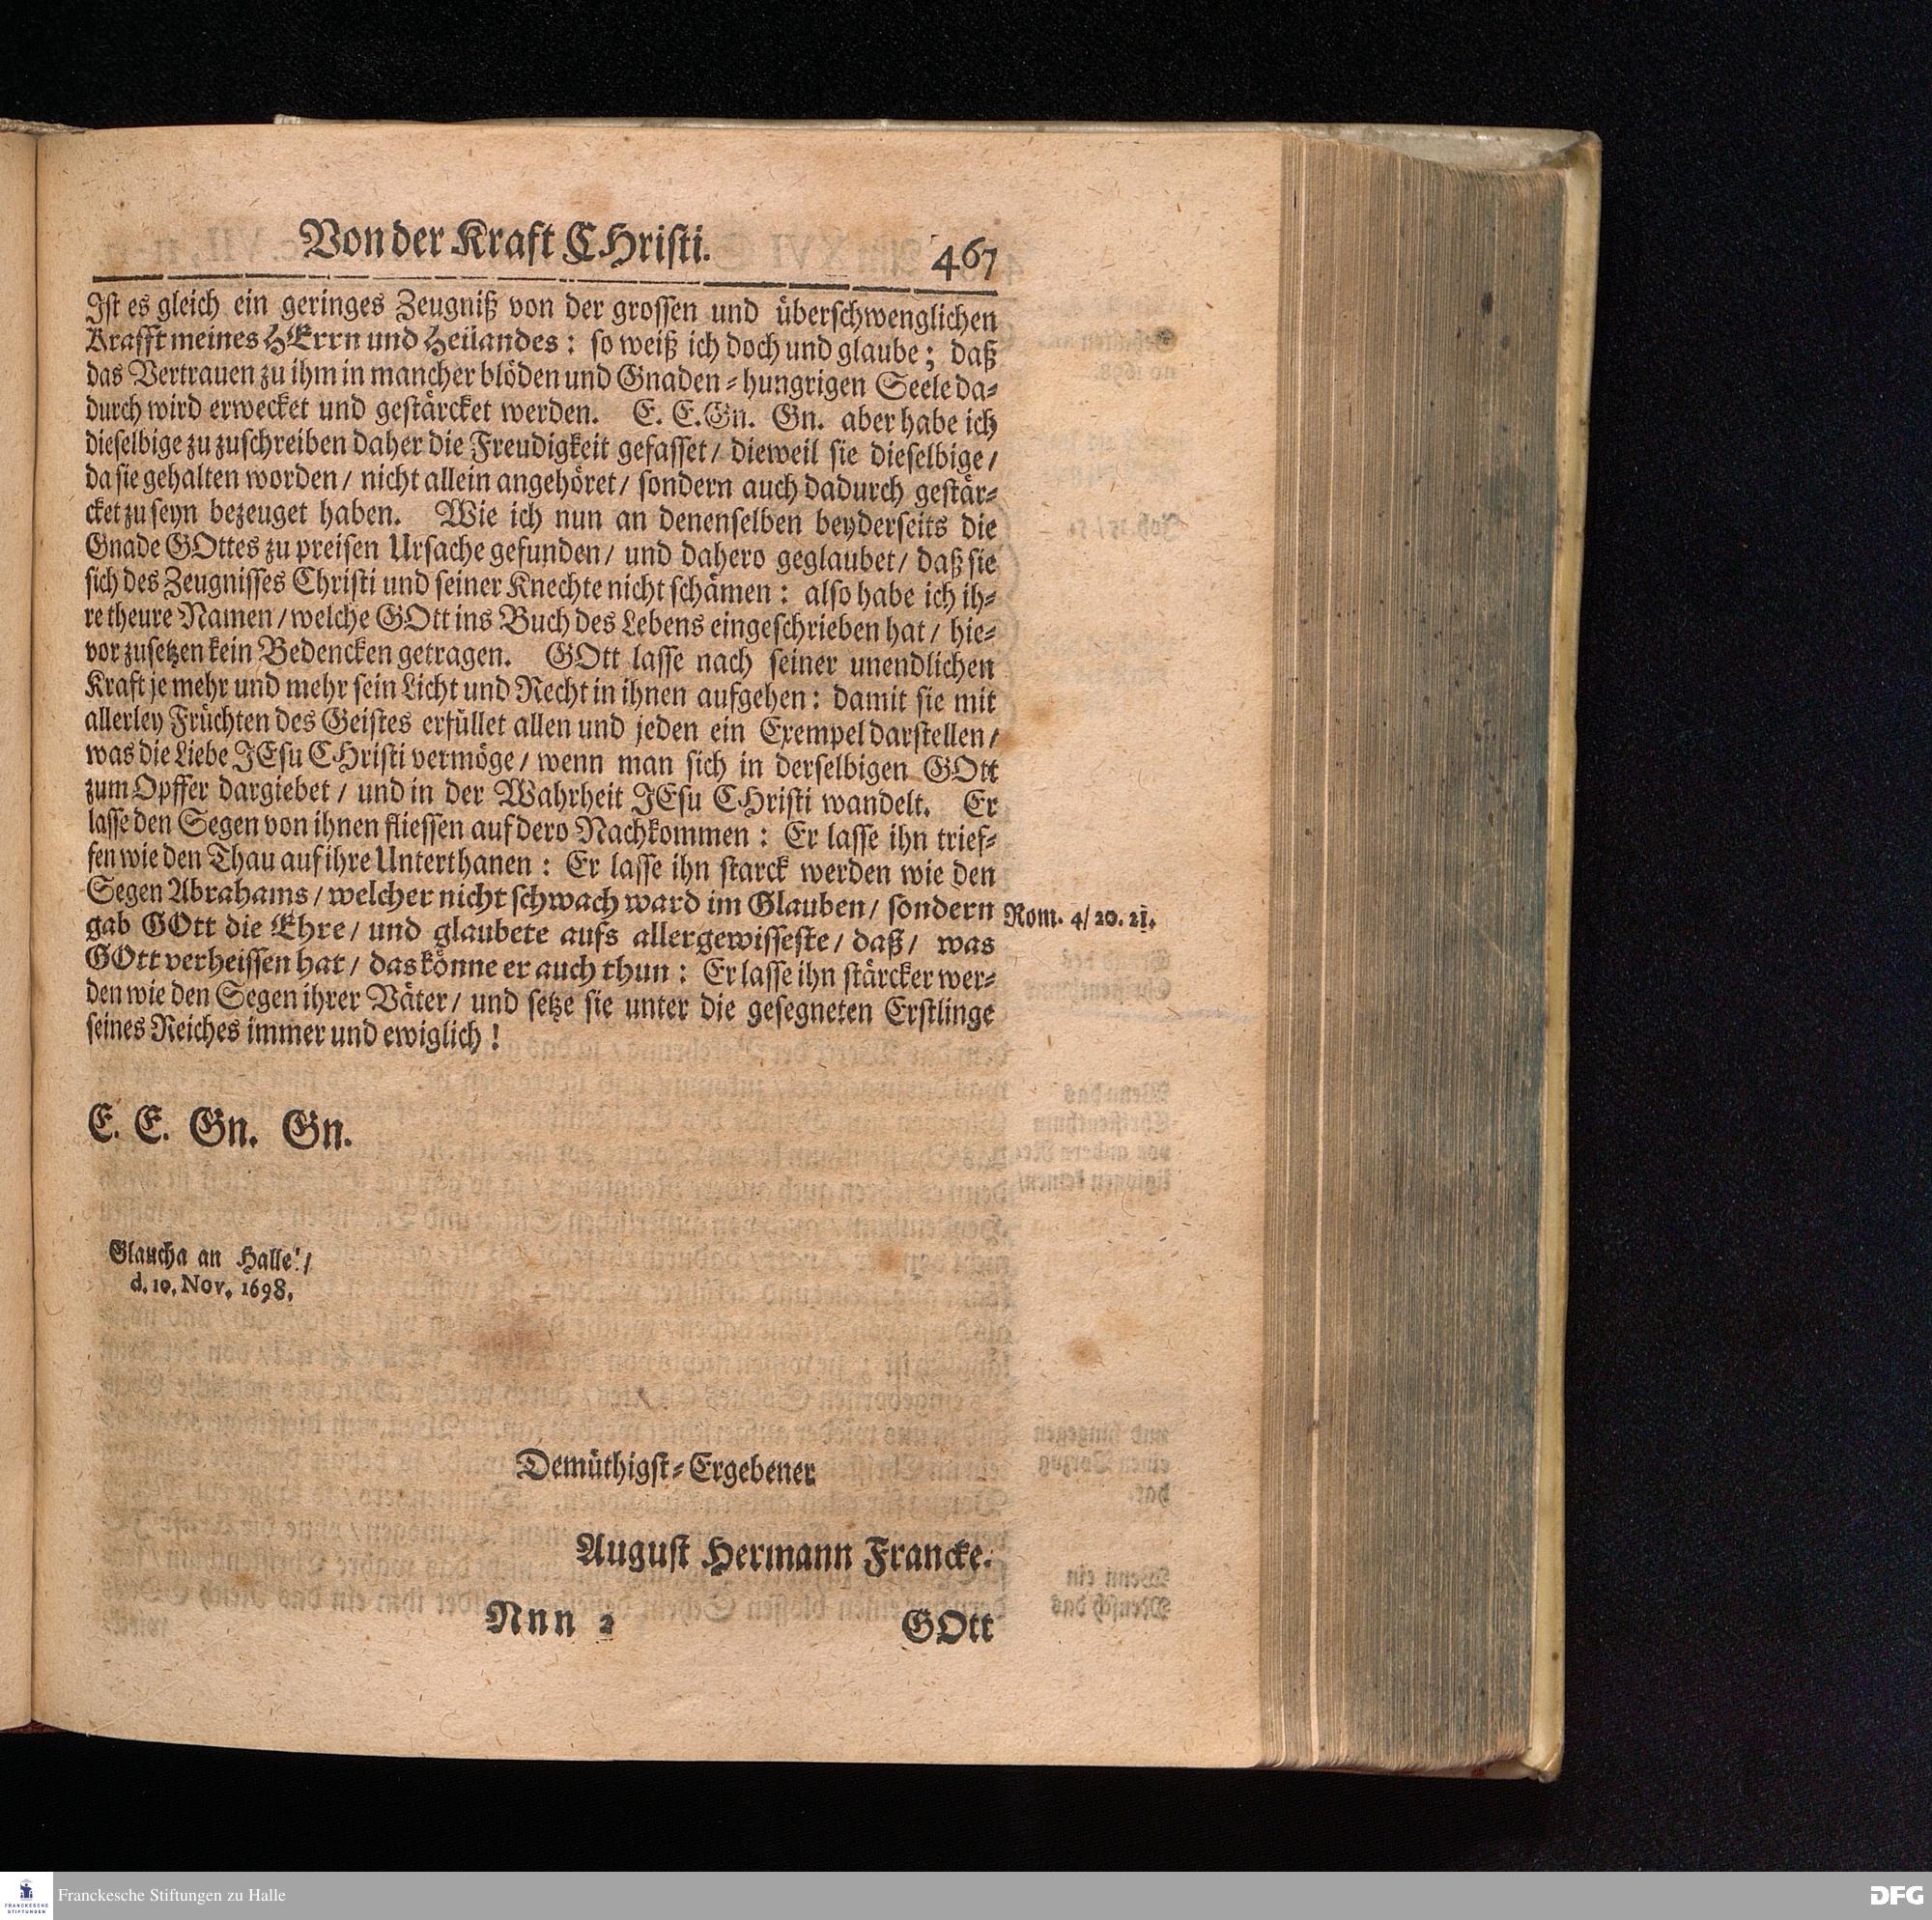 Von der Kraft CHristi. 467
Ist es gleich ein geringes Zeugniß von der grossen und überschwenglichen
Krafft meines HErrn und Heilandes: so weiß ich doch und glaube; daß
das Vertrauen zu ihm in mancher blöden und Gnaden-hungrigen Seele da-
durch wird erwecket und gestärcket werden. E. E. Gn. Gn. aber habe ich
dieselbige zu zuschreiben daher die Freudigkeit gefasset/ dieweil sie dieselbige/
da sie gehalten worden/ nicht allein angehöret/ sondern auch dadurch gestär-
cket zu seyn bezeuget haben. Wie ich nun an denenselben beyderseits die
Gnade GOttes zu preisen Ursache gefunden/ und dahero geglaubet/ daß sie
sich des Zeugnisses Christi und seiner Knechte nicht schämen: also habe ich ih-
re theure Namen/ welche GOtt ins Buch des Lebens eingeschrieben hat/ hie-
vor zusetzen kein Bedencken getragen. GOtt lasse nach seiner unendlichen
Kraft je mehr und mehr sein Licht und Recht in ihnen aufgehen: damit sie mit
allerley Früchten des Geistes erfüllet allen und jeden ein Exempel darstellen/
was die Liebe JEsu CHristi vermöge/ wenn man sich in derselbigen GOtt
zum Opffer dargiebet/ und in der Wahrheit JEsu CHristi wandelt. Er
lasse den Segen von ihnen fliessen auf dero Nachkommen: Er lasse ihn trief-
fen wie den Thau auf ihre Unterthanen: Er lasse ihn starck werden wie den
Segen Abrahams/ welcher nicht schwach ward im Glauben/ sondern
gab GOtt die Ehre/ und glaubete aufs allergewisseste/ daß/ was
GOtt verheissen hat/ das könne er auch thun: Er lasse ihn stärcker wer-
den wie den Segen ihrer Väter/ und setze sie unter die gesegneten Erstlinge
seines Reiches immer und ewiglich!
Rom. 4/20. 21.
E. E. Gn. Gn.
Glaucha an Halle!/
d. 10. Nov. 1698.
Demüthigst-Ergebener
August Hermann Francke.
Nnn 2 GOtt
FRANCKESCHE
STIFTUNGEN
Franckesche Stiftungen zu Halle
DFG